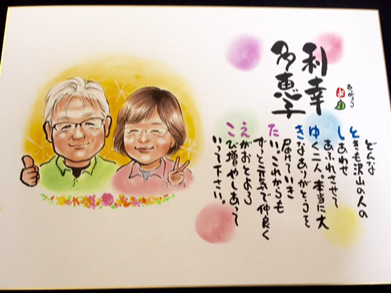 利幸
多恵子
どんな
ときも沢山の人の
しあわせ
あふれさせて
ゆく二人。本当に大
きなありがとうを
届けていき
たい。これからも
ずっと元気で仲良く
えがおとよろ
こび増やしあって
いって下さい。